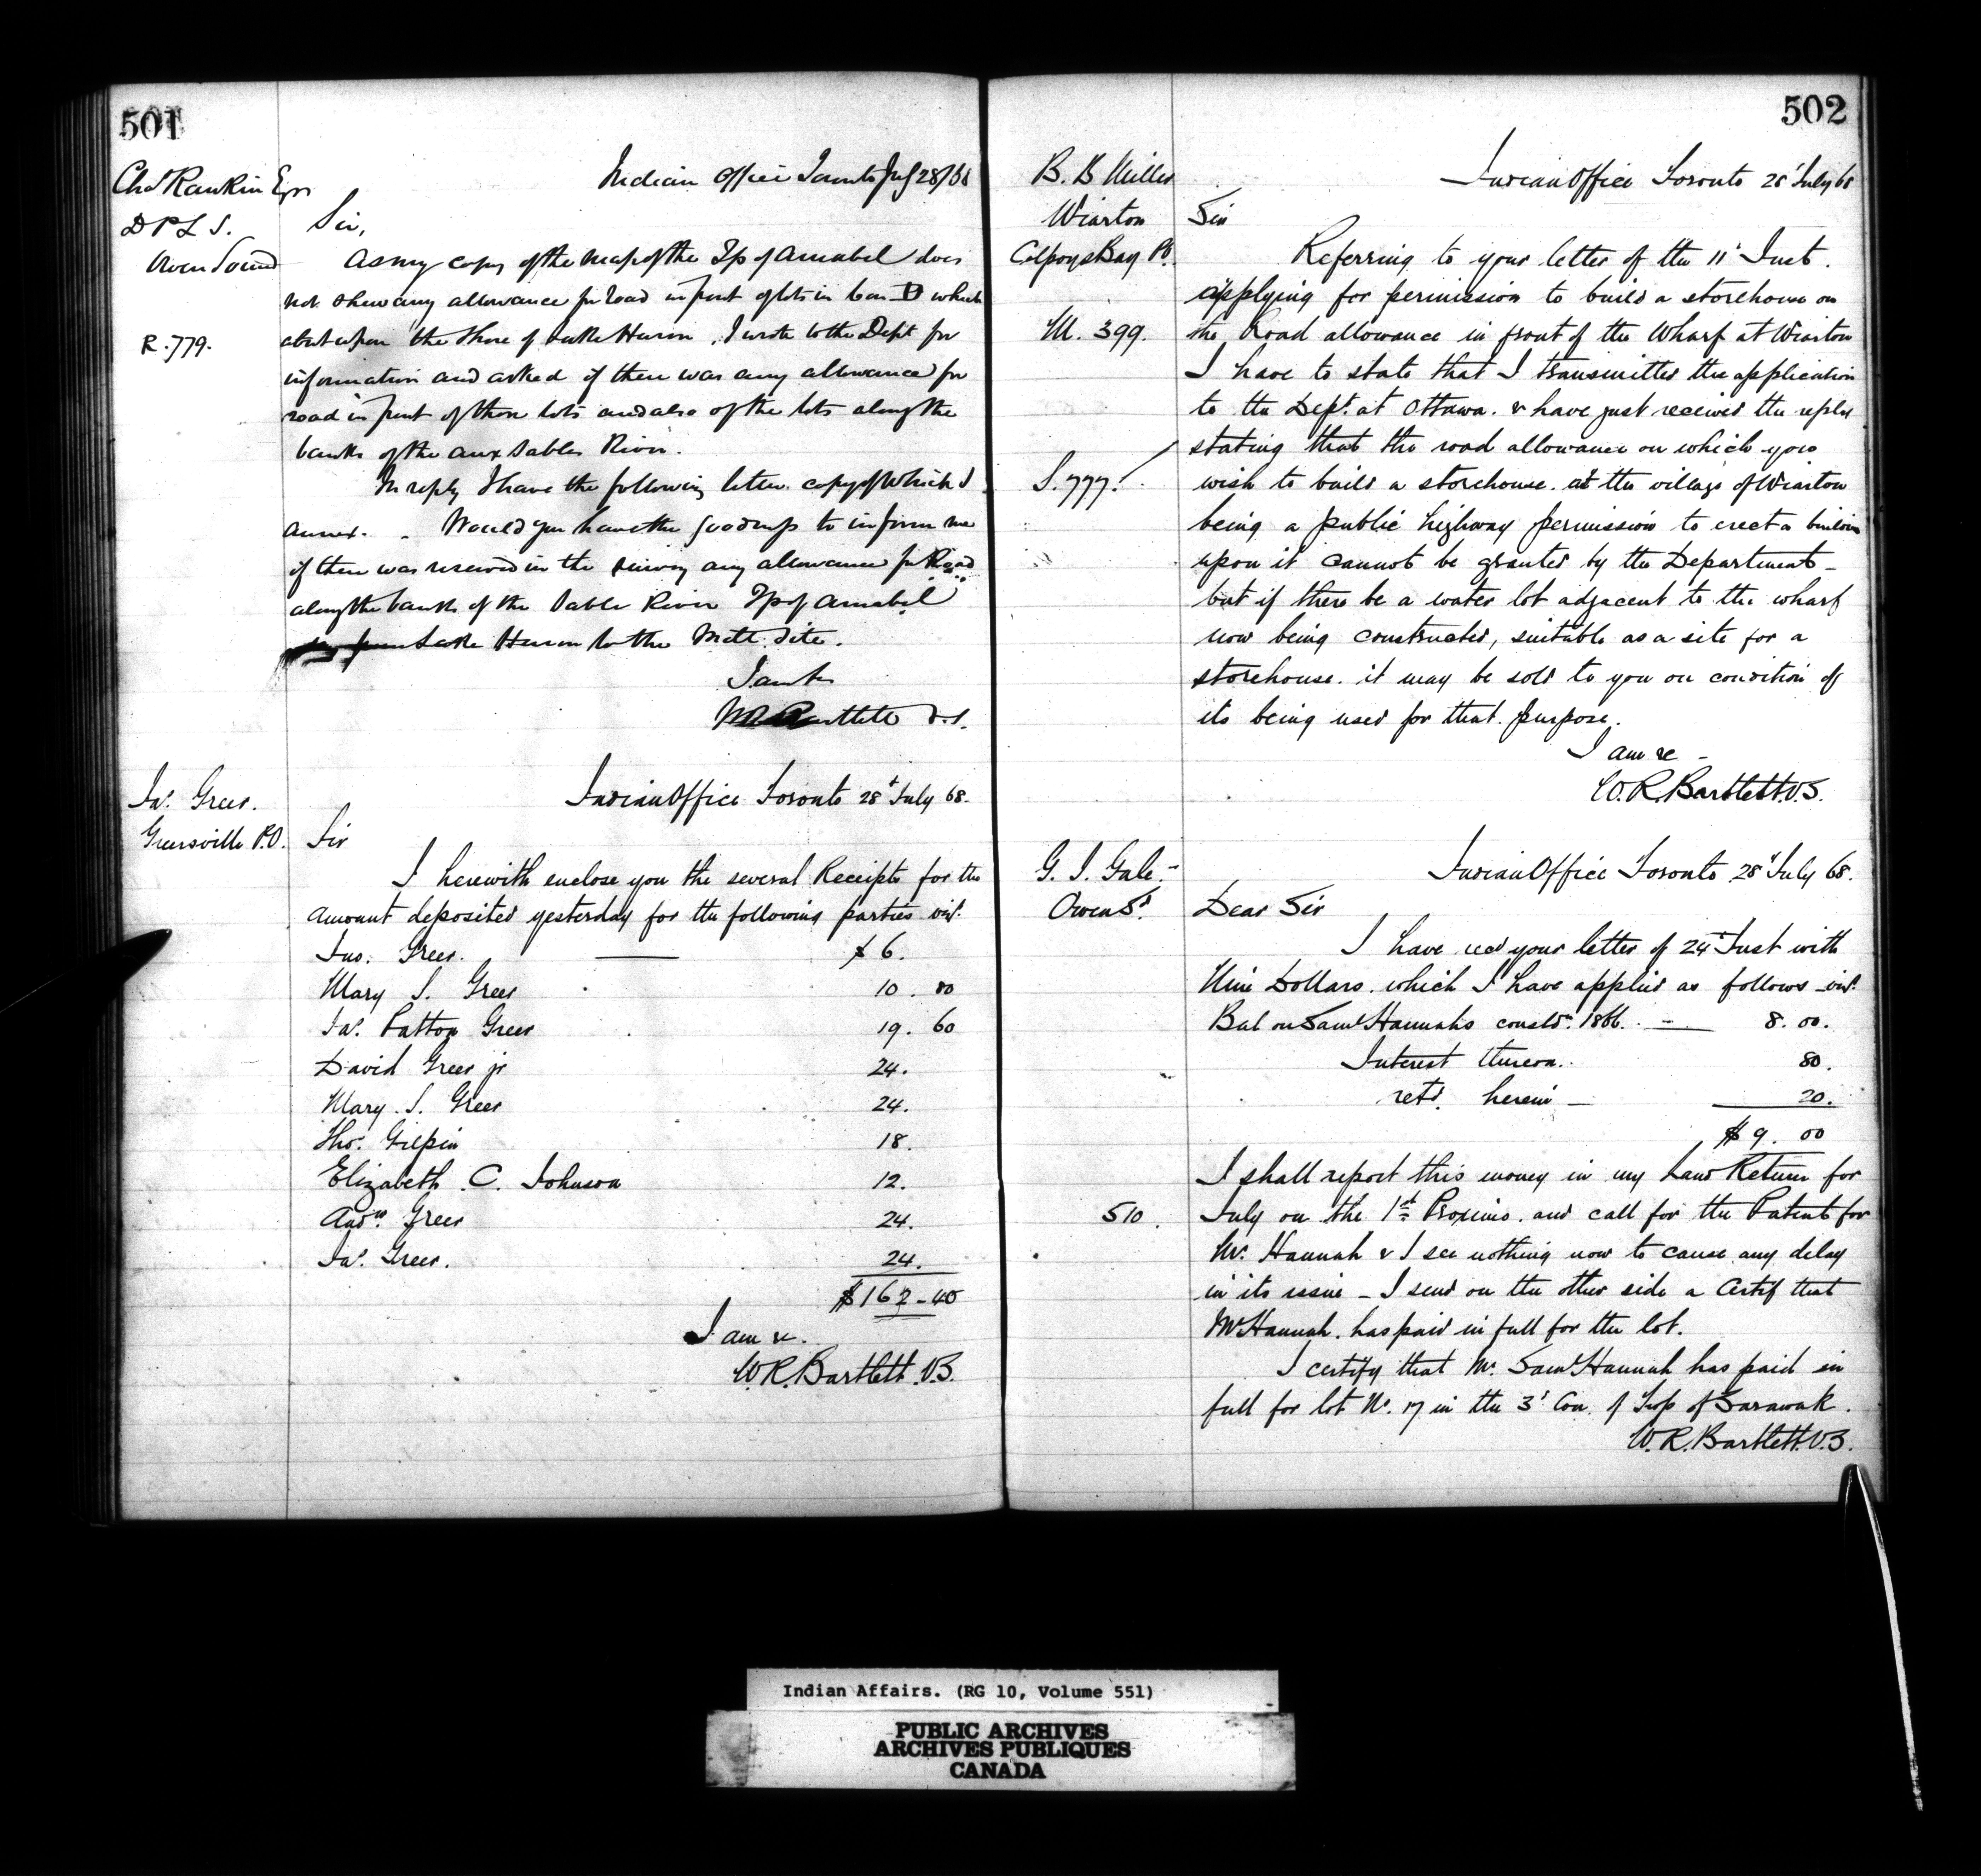 501
Chs Rankin Esqr
D P L S.
Owen Sound
R. 779.
Indian Office Toronto July 28/68
Sir,
As my copy of the map of the Tp of Amabel does
not shew any allowance for road in front of lots in Con D which
abut upon the Shore of Lake Huron, I wrote to the Dept for
information and asked if there was any allowance for
road in front of those lots and also of the lots along the
banks of the aux Sables River.
In reply I have the following letter copy of which I
annex. - Would you have the goodness to inform me
if there was reserved in the survey any allowance for Road
along the bank of the Sable River Tp of Amabel
from Lake Huron to the Mill Site.
I am &c
W R Bartlett V.S.
Jas. Greer.
Greersville P.O.
Indian Office Toronto 28th July 68.
Sir
I herewith enclose you the several Receipts for the
amount deposited yesterday for the following parties viz.
Jno. Greer. $ 6.
Mary S. Greer 10. 80
Jas. Patton Greer 19. 60
David Greer jr 24.
Mary. S. Greer 24.
Thos. Gilpin 18.
Elizabeth C. Johnson 12.
Andw. Greer 24.
Jas. Greer. 24.
$162-40
I am &c.
W. R. Bartlett. V.S.
502
B. B Miller
Wiarton
Colpoys Bay PO.
M. 399.
S. 777.
Indian Office Toronto 28 July 68
Sir
Referring to your letter of the 11' Inst.
applying for permission to build a storehouse on
the Road allowance in front of the Wharf at Wiarton
I have to state that I transmitted the application
to the Dept. at Ottawa. & have just received the reply
stating that the road allowance on which you
wish to build a storehouse. at the village of Wiarton
being a public highway permission to erect a building
upon it cannot be granted by the Department -
but if there be a water lot adjacent to the wharf
now being constructed, suitable as a site for a
storehouse. it may be sold to you on condition of
its being used for that purpose.
I am &c -
W. R. Bartlett. V.S.
G. J. Gale. -
Owen Sd.
510.
Indian Office Toronto 28' July 68.
Dear Sir
I have recd your letter of 24' Inst with
Nine Dollars. which I have applied as follows viz.
Bal on Saml Hannahs 1866. - 8. 00.
Interest thereon. 80.
retd. herein - 20.
$ 9. 00
I shall report this money in my Land Return for
July on the 1st Proximo. and call for the Patent for
Mr. Hannah & I see nothing now to cause any delay
in its issue - I send on the other side a Certif that
Mr Hannah. has paid in full for the lot.
I certify that Mr. Saml Hannah has paid in
full for lot No. 17 in the 3' Con. of Twp of Sarawak.
W. R. Bartlett. V.S.
Indian Affairs. (RG 10, Volume 551)
PUBLIC ARCHIVES
ARCHIVES PUBLIQUES
CANADA